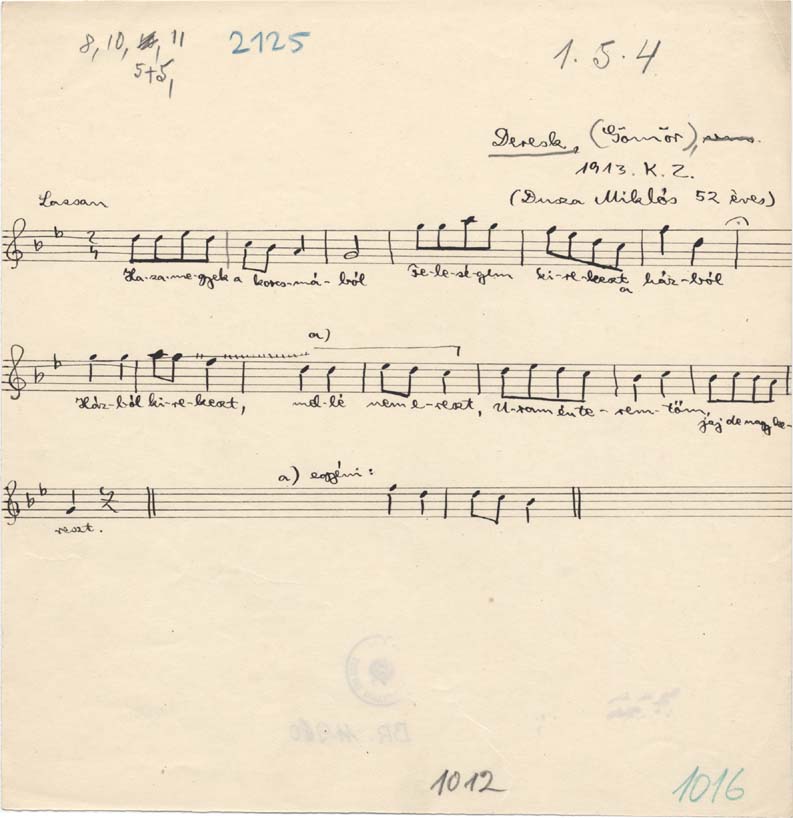 8, 10, 11
5+5,
2125
1. 5. 4
Deresk, (Gömör),
1913. K. Z.
(Dusza Miklós 52 éves)
Lassan
2
4
Ha-za-me-gyek a korcs-má-ból Fe-le-sé-gem ki-re-keszt a ház-ból
a)
Ház-ból ki-re-keszt, mel-lé nem e-reszt, U-ram én te-rem-tőm, jaj de nagy ke-
a) egyéni:
reszt.
BR. 11
1012
1016